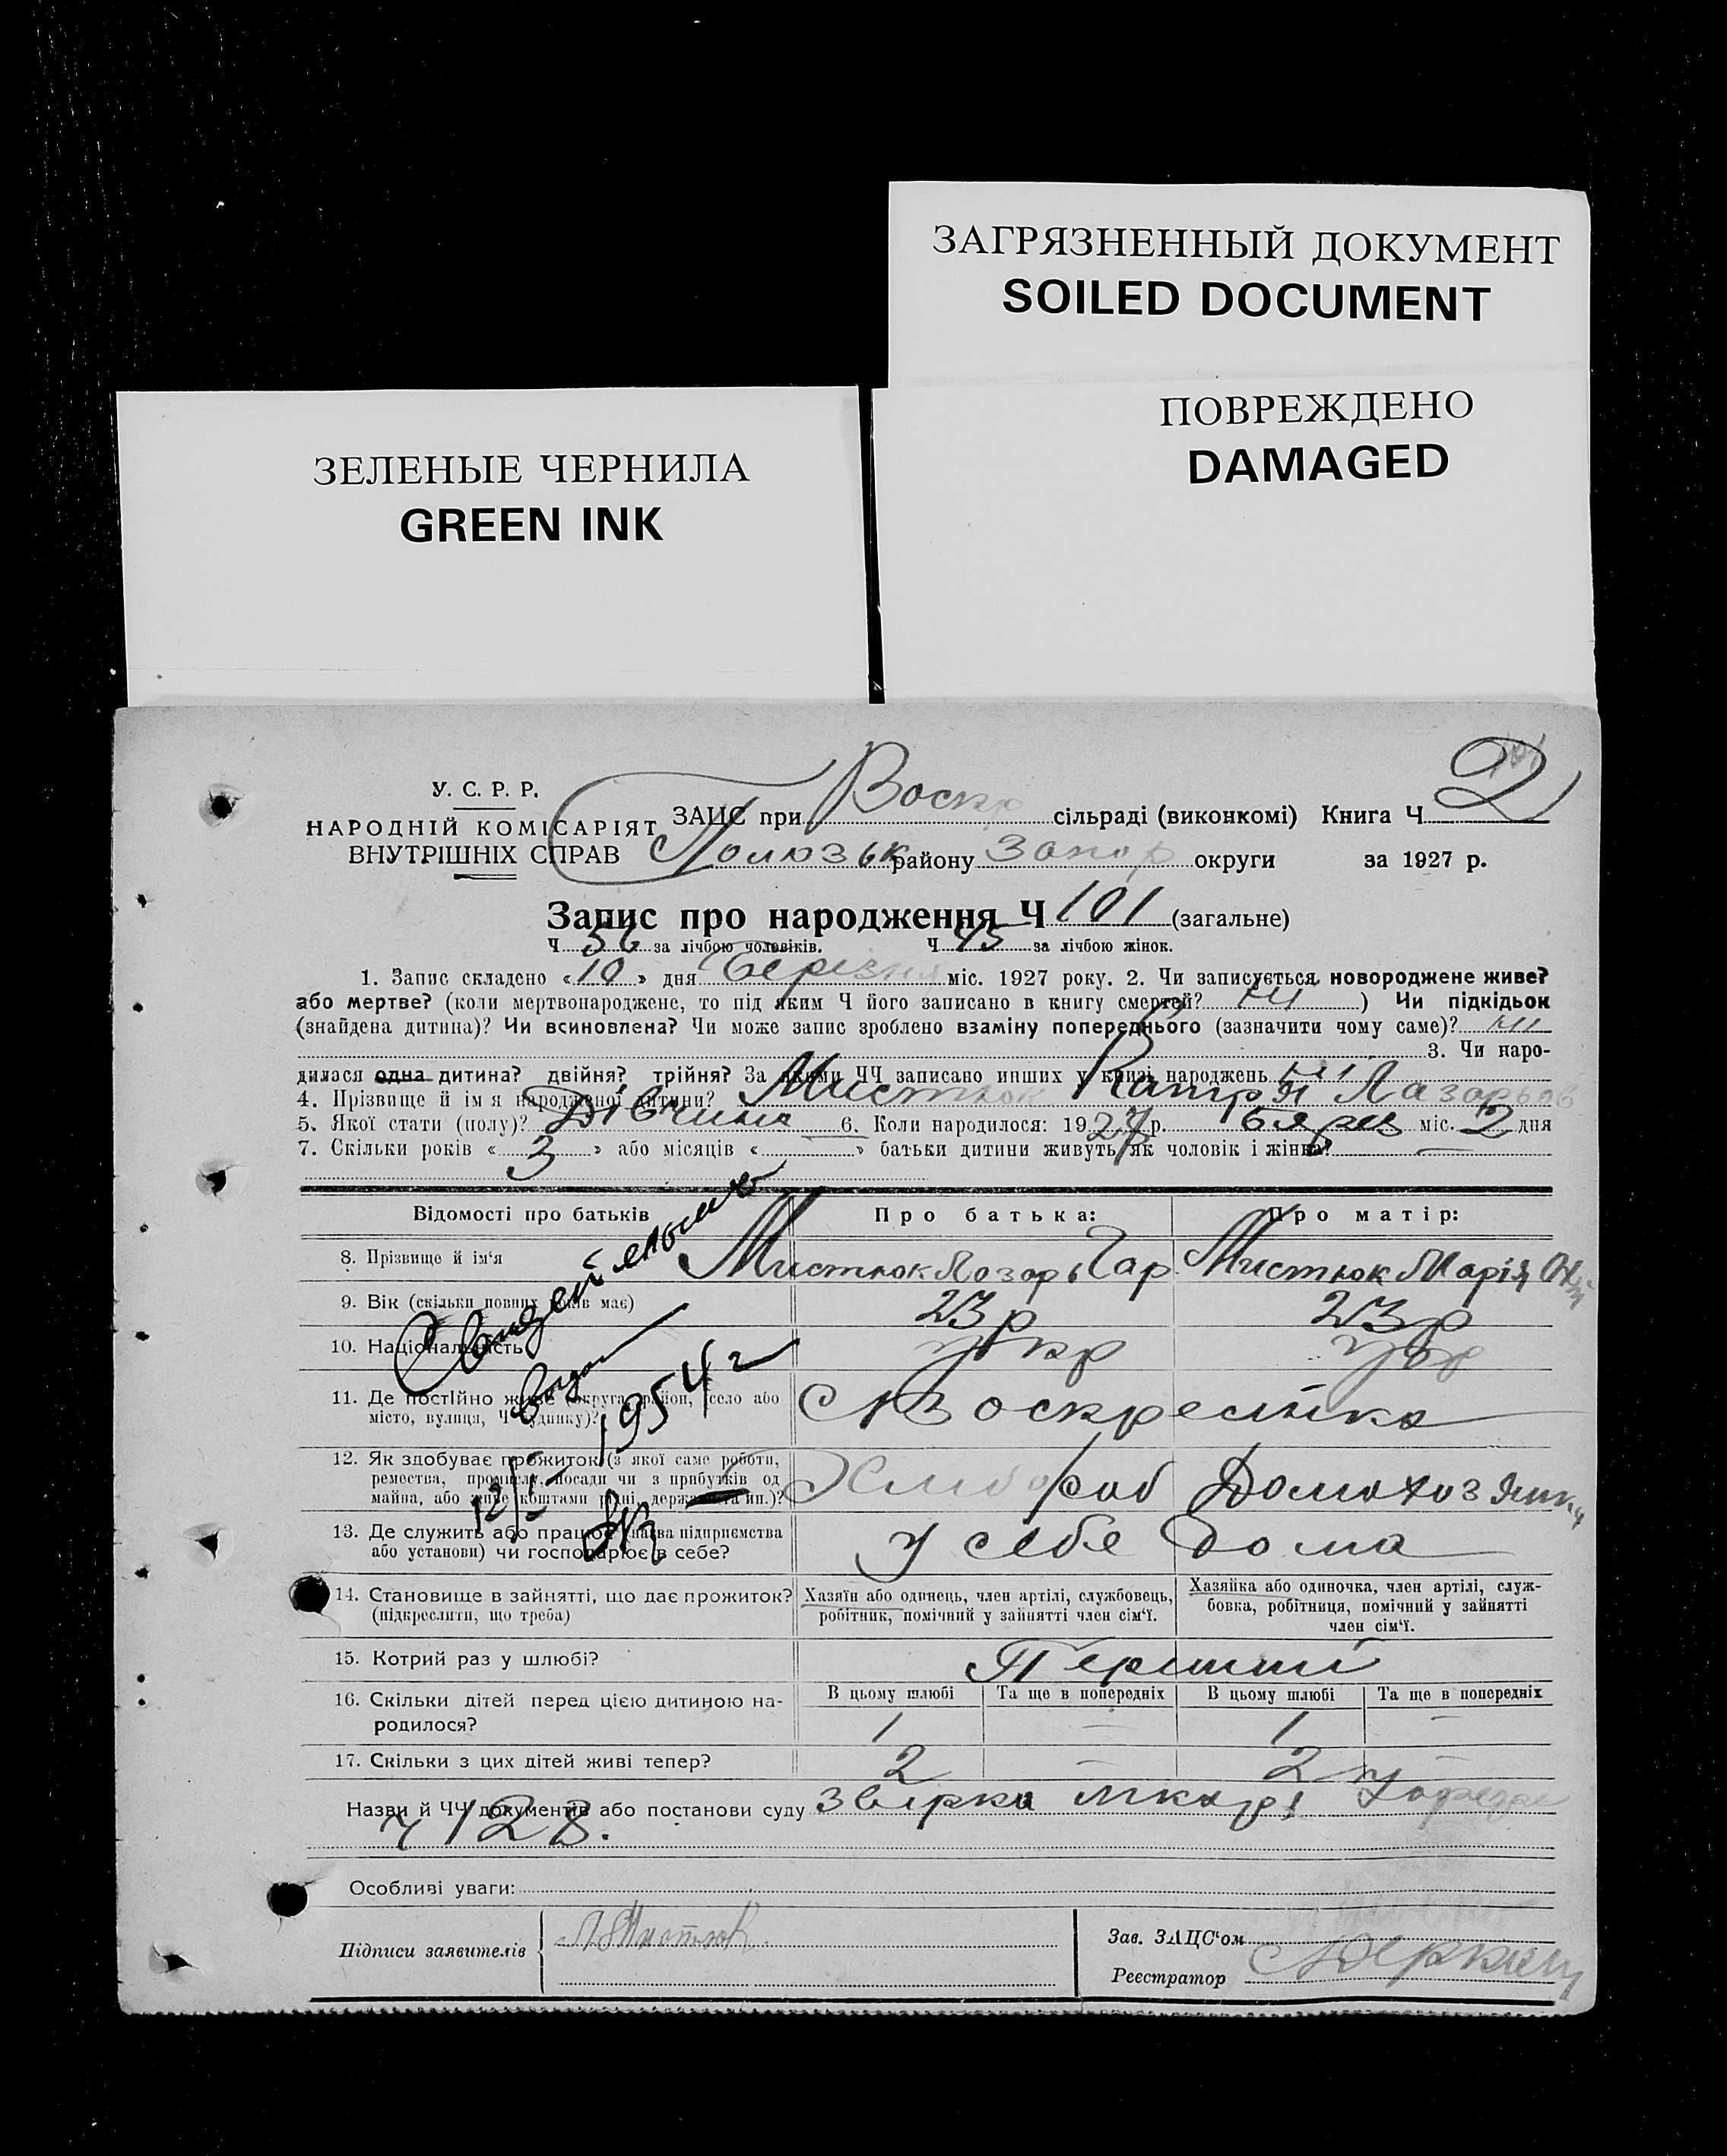 ЗАГРЯЗНЕННЫЙ ДОКУМЕНТ
SOILED DOCUMENT
ПОВРЕЖДЕНО
DAMAGED
ЗЕЛЕНЫЕ ЧЕРНИЛА
GREEN INK
У. С. Р. Р.
НАРОДНІЙ КОМІСАРІЯТ
ВНУТРІШНІХ СПРАВ
ЗАЦС при Воскр сільраді (виконкомі) Книга Ч 2
Пологзьк району Запор округи за 1927 р.
Запис про народження Ч 101 (загальне)
Ч 56 за лічбою чоловіків. Ч 45 за лічбою жінок.
1. Запис складено «10» дня Березня міс. 1927 року. 2. Чи записується новороджене живе?
або мертве? (коли мертвонароджене, то під яким Ч його записано в книгу смертей? ні) Чи підкідьок
(знайдена дитина)? Чи всиновлена? Чи може запис зроблено взаміну попереднього (зазначити чому саме)? ні
3. Чи наро-
дилася одна дитина? двійня? трійня? За якими ЧЧ записано инших у книзі народжень ні
4. Прізвище й ім'я народженої дитини? Мистюк Катря Лазарьов
5. Якої стати (полу)? Дівчина 6. Коли народилося: 1927 р. Берез міс. 2 дня
7. Скільки років «3» або місяців « » батьки дитини живуть як чоловік і жінка? —
Відомості про батьків Про батька: Про матір:
8. Прізвище й ім'я Мистюк Лазарь Мистюк Марія
9. Вік (скільки повних років має) 23 р 23 р
10. Національність укр укр
11. Де постійно живе (округа, район, село або
місто, вулиця, Ч будинку)? с Воскресінка
12. Як здобуває прожиток (з якої саме роботи,
ремества, промислу, посади чи з прибутків од
майна, або живе коштами рідні, держави та ин.)? Хлибороб Домохозяйка
13. Де служить або працює (назва підприємства
або установи) чи господарює в себе? у себе дома
Свидетельство
выдан
12/I – 1954 г
14. Становище в зайнятті, що дає прожиток?
(підкреслити, що треба)
Хазяїн або одинець, член артілі, службовець,
робітник, помічний у зайнятті член сім'ї.
Хазяйка або одиночка, член артілі, служ-
бовка, робітниця, помічний у зайнятті
член сім'ї.
15. Котрий раз у шлюбі? Перший
16. Скільки дітей перед цією дитиною на-
родилося?
В цьому шлюбі Та ще в попередніх В цьому шлюбі Та ще в попередніх
1 — 1 —
17. Скільки з цих дітей живі тепер? 2 — 2 —
Назви й ЧЧ документів або постанови суду звірка
ч 128.
Особливі уваги:
Підписи заявителів Л Мистюк
Зав. ЗАЦС'ом
Реєстратор